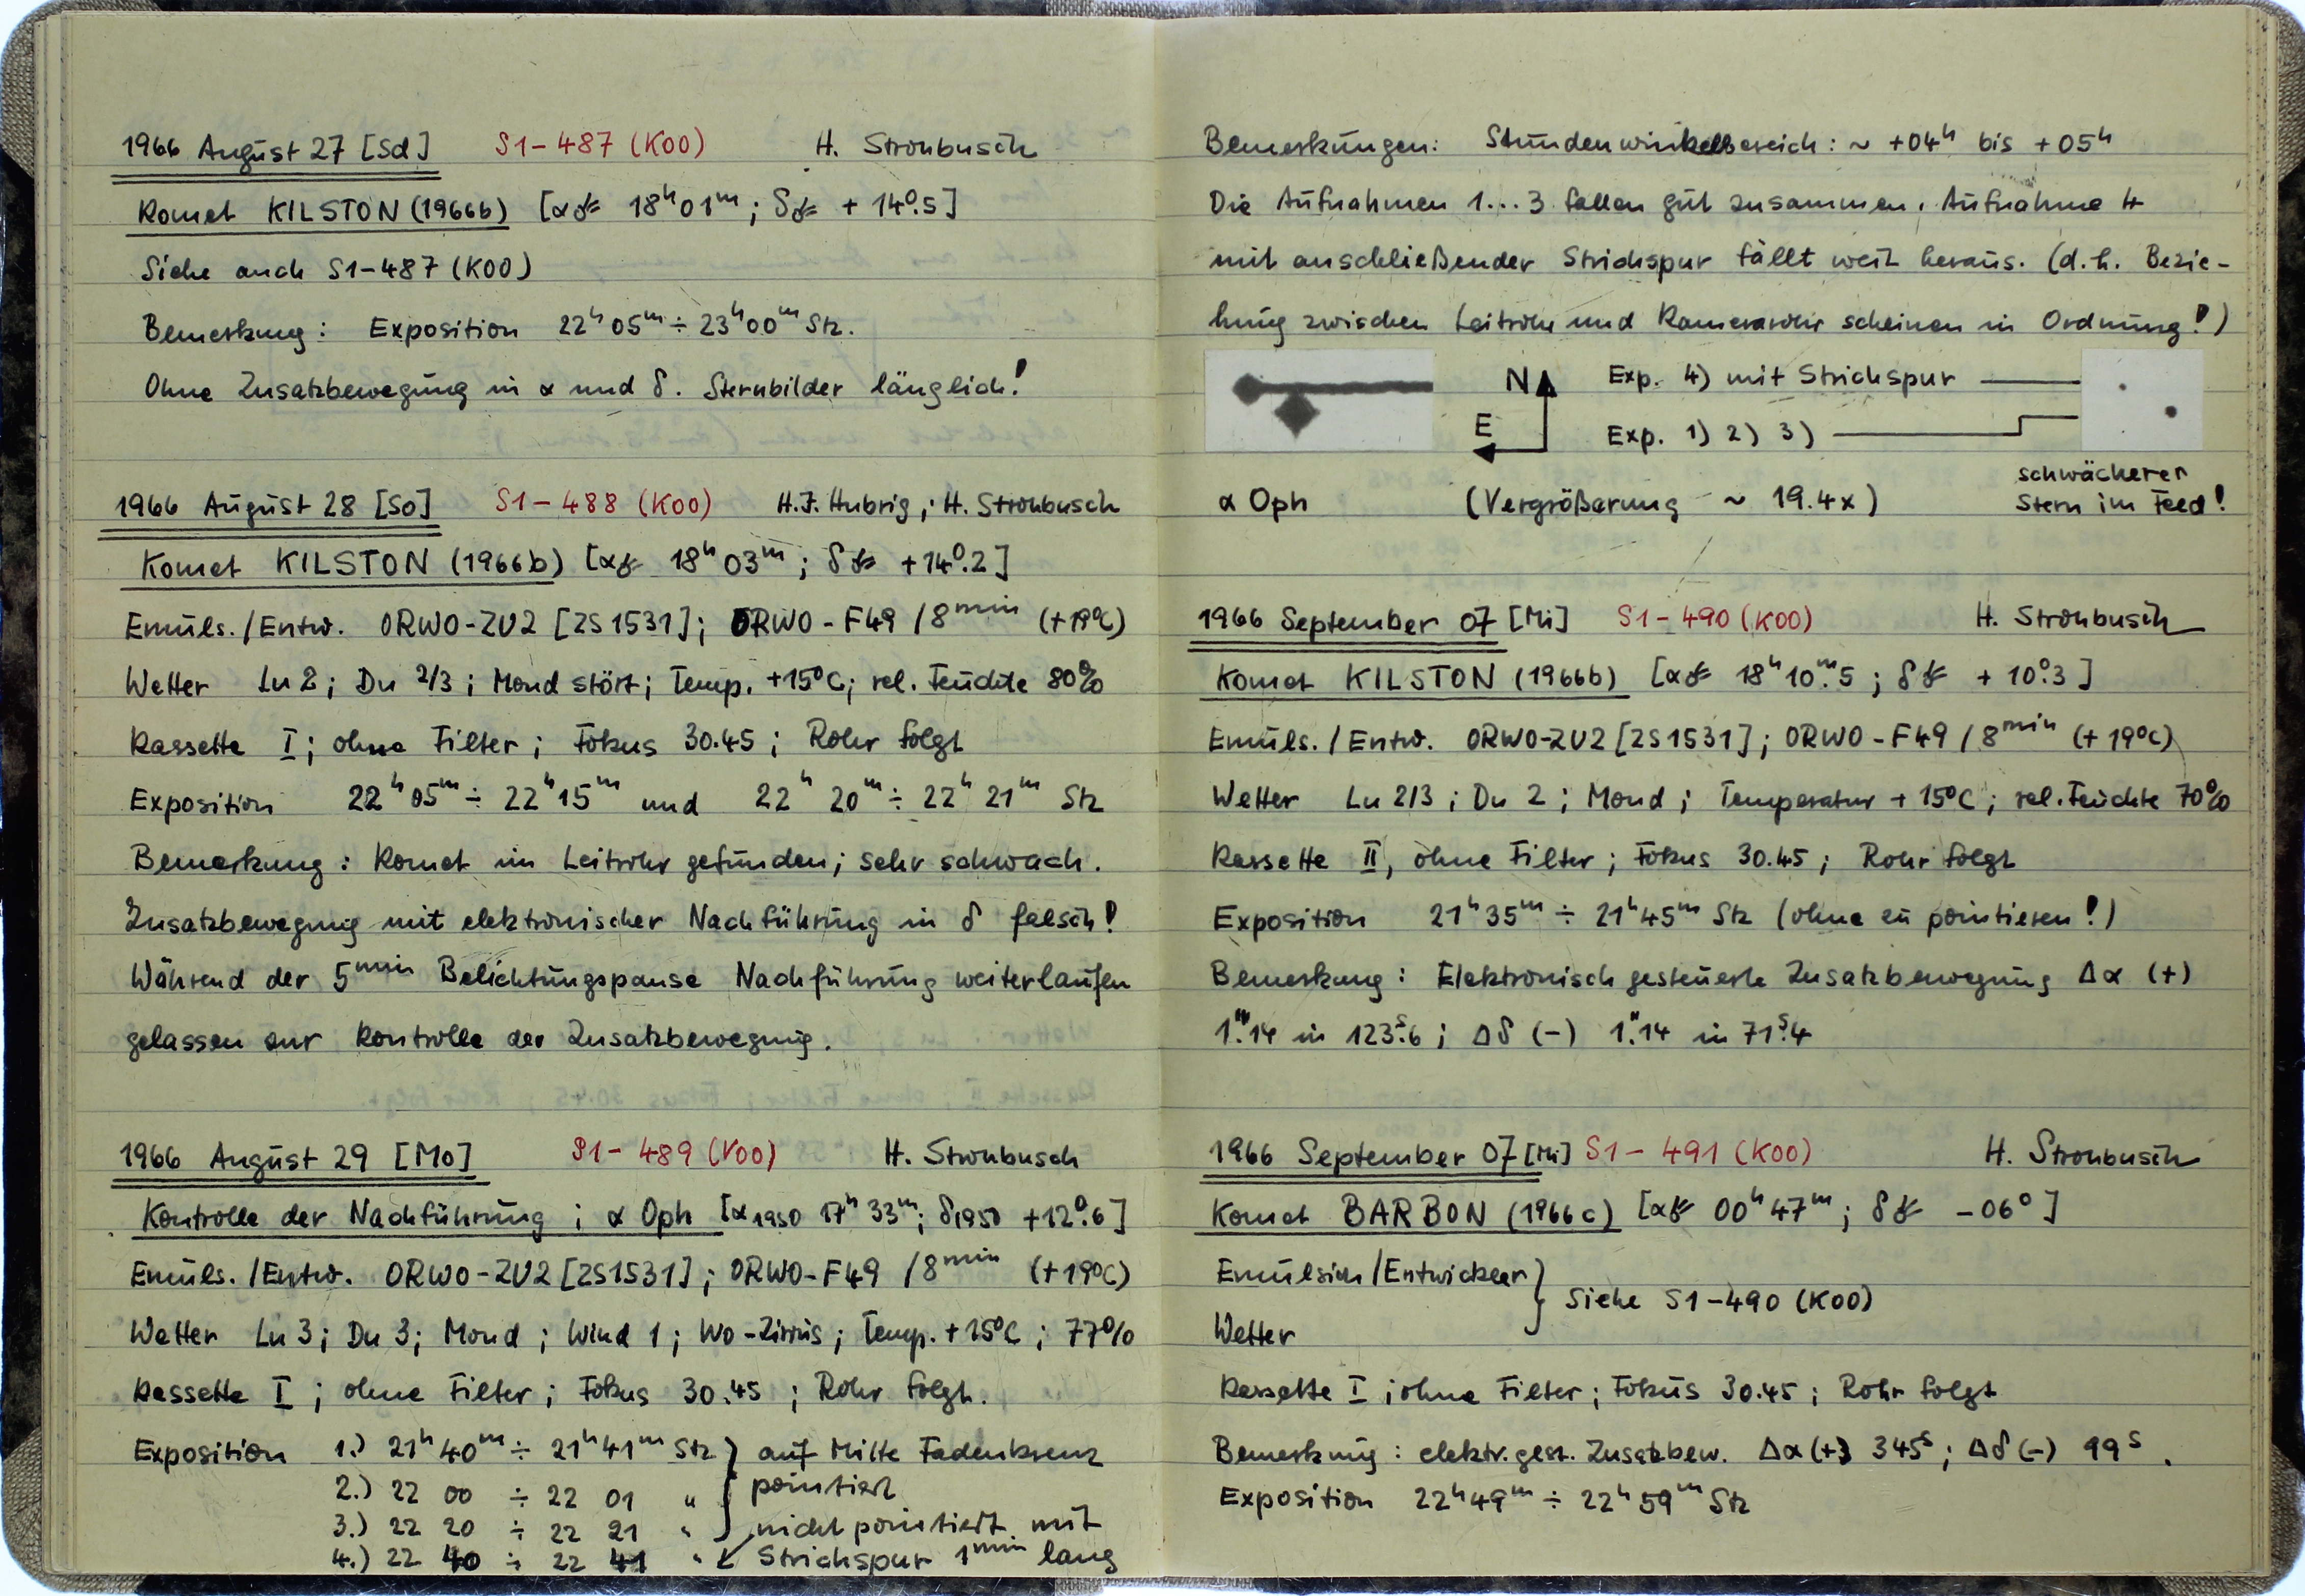 1966 August 27 [Sd] S1-487 (K00) H. Strohbusch
Komet KILSTON (1966b) [α☄ 18ʰ01ᵐ; δ☄ +14°.5]
Siehe auch S1-487 (K00)
Bemerkung: Exposition 22ʰ05ᵐ ÷ 23ʰ00ᵐ Stz.
Ohne Zusatzbewegung in α und δ. Sternbilder länglich!
1966 August 28 [So] S1-488 (K00) H.J. Hubrig; H. Strohbusch
Komet KILSTON (1966b) [α☄ 18ʰ03ᵐ; δ☄ +14°.2]
Emuls./Entw. ORWO-ZU2 [ZS1531]; ORWO-F49 / 8ᵐⁱⁿ (+19°C)
Wetter Lu 2; Du 2/3; Mond stört; Temp. +15°C; rel. Feuchte 80%
Kassette I; ohne Filter; Fokus 30.45; Rohr folgt
Exposition 22ʰ05ᵐ ÷ 22ʰ15ᵐ und 22ʰ20ᵐ ÷ 22ʰ21ᵐ Stz
Bemerkung: Komet im Leitrohr gefunden; sehr schwach.
Zusatzbewegung mit elektronischer Nachführung in δ falsch!
Während der 5ᵐⁱⁿ Belichtungspause Nachführung weiterlaufen
gelassen zur Kontrolle der Zusatzbewegung.
1966 August 29 [Mo] S1-489 (V00) H. Strohbusch
Kontrolle der Nachführung; α Oph [α1950 17ʰ33ᵐ; δ1950 +12°.6]
Emuls./Entw. ORWO-ZU2 [ZS1531]; ORWO-F49 / 8ᵐⁱⁿ (+19°C)
Wetter Lu 3; Du 3; Mond; Wind 1; Wo-Zirrus; Temp. +15°C; 77%
Kassette I; ohne Filter; Fokus 30.45; Rohr folgt.
Exposition 1.) 21ʰ40ᵐ ÷ 21ʰ41ᵐ Stz } auf Mitte Fadenkreuz
2.) 22 00 ÷ 22 01 " pointiert
3.) 22 20 ÷ 22 21 " nicht pointiert, mit
4.) 22 40 ÷ 22 41 " Strichspur 1ᵐⁱⁿ lang
Bemerkungen: Stundenwinkelbereich: ~ +04ʰ bis +05ʰ
Die Aufnahmen 1...3 fallen gut zusammen. Aufnahme 4
mit anschließender Strichspur fällt weit heraus. (d.h. Bezie-
hung zwischen Leitrohr und Kamerarohr scheinen in Ordnung!)
N Exp. 4) mit Strichspur
E Exp. 1) 2) 3)
schwächerer
α Oph (Vergrößerung ~ 19.4x) Stern im Feld!
1966 September 07 [Mi] S1-490 (K00) H. Strohbusch
Komet KILSTON (1966b) [α☄ 18ʰ10ᵐ.5; δ☄ +10°.3]
Emuls./Entw. ORWO-ZU2 [ZS1531]; ORWO-F49 / 8ᵐⁱⁿ (+19°C)
Wetter Lu 2/3; Du 2; Mond; Temperatur +15°C; rel. Feuchte 70%
Kassette II, ohne Filter; Fokus 30.45; Rohr folgt
Exposition 21ʰ35ᵐ ÷ 21ʰ45ᵐ Stz (ohne zu pointieren!)
Bemerkung: Elektronisch gesteuerte Zusatzbewegung Δα (+)
1".14 in 123ˢ.6; Δδ (-) 1".14 in 71ˢ.4
1966 September 07 [Mi] S1-491 (K00) H. Strohbusch
Komet BARBON (1966c) [α☄ 00ʰ47ᵐ; δ☄ -06°]
Emulsion/Entwickler
} Siehe S1-490 (K00)
Wetter
Kassette I; ohne Filter; Fokus 30.45; Rohr folgt
Bemerkung: elektr. gest. Zusatzbew. Δα (+) 345ˢ; Δδ (-) 99ˢ.
Exposition 22ʰ49ᵐ ÷ 22ʰ59ᵐ Stz